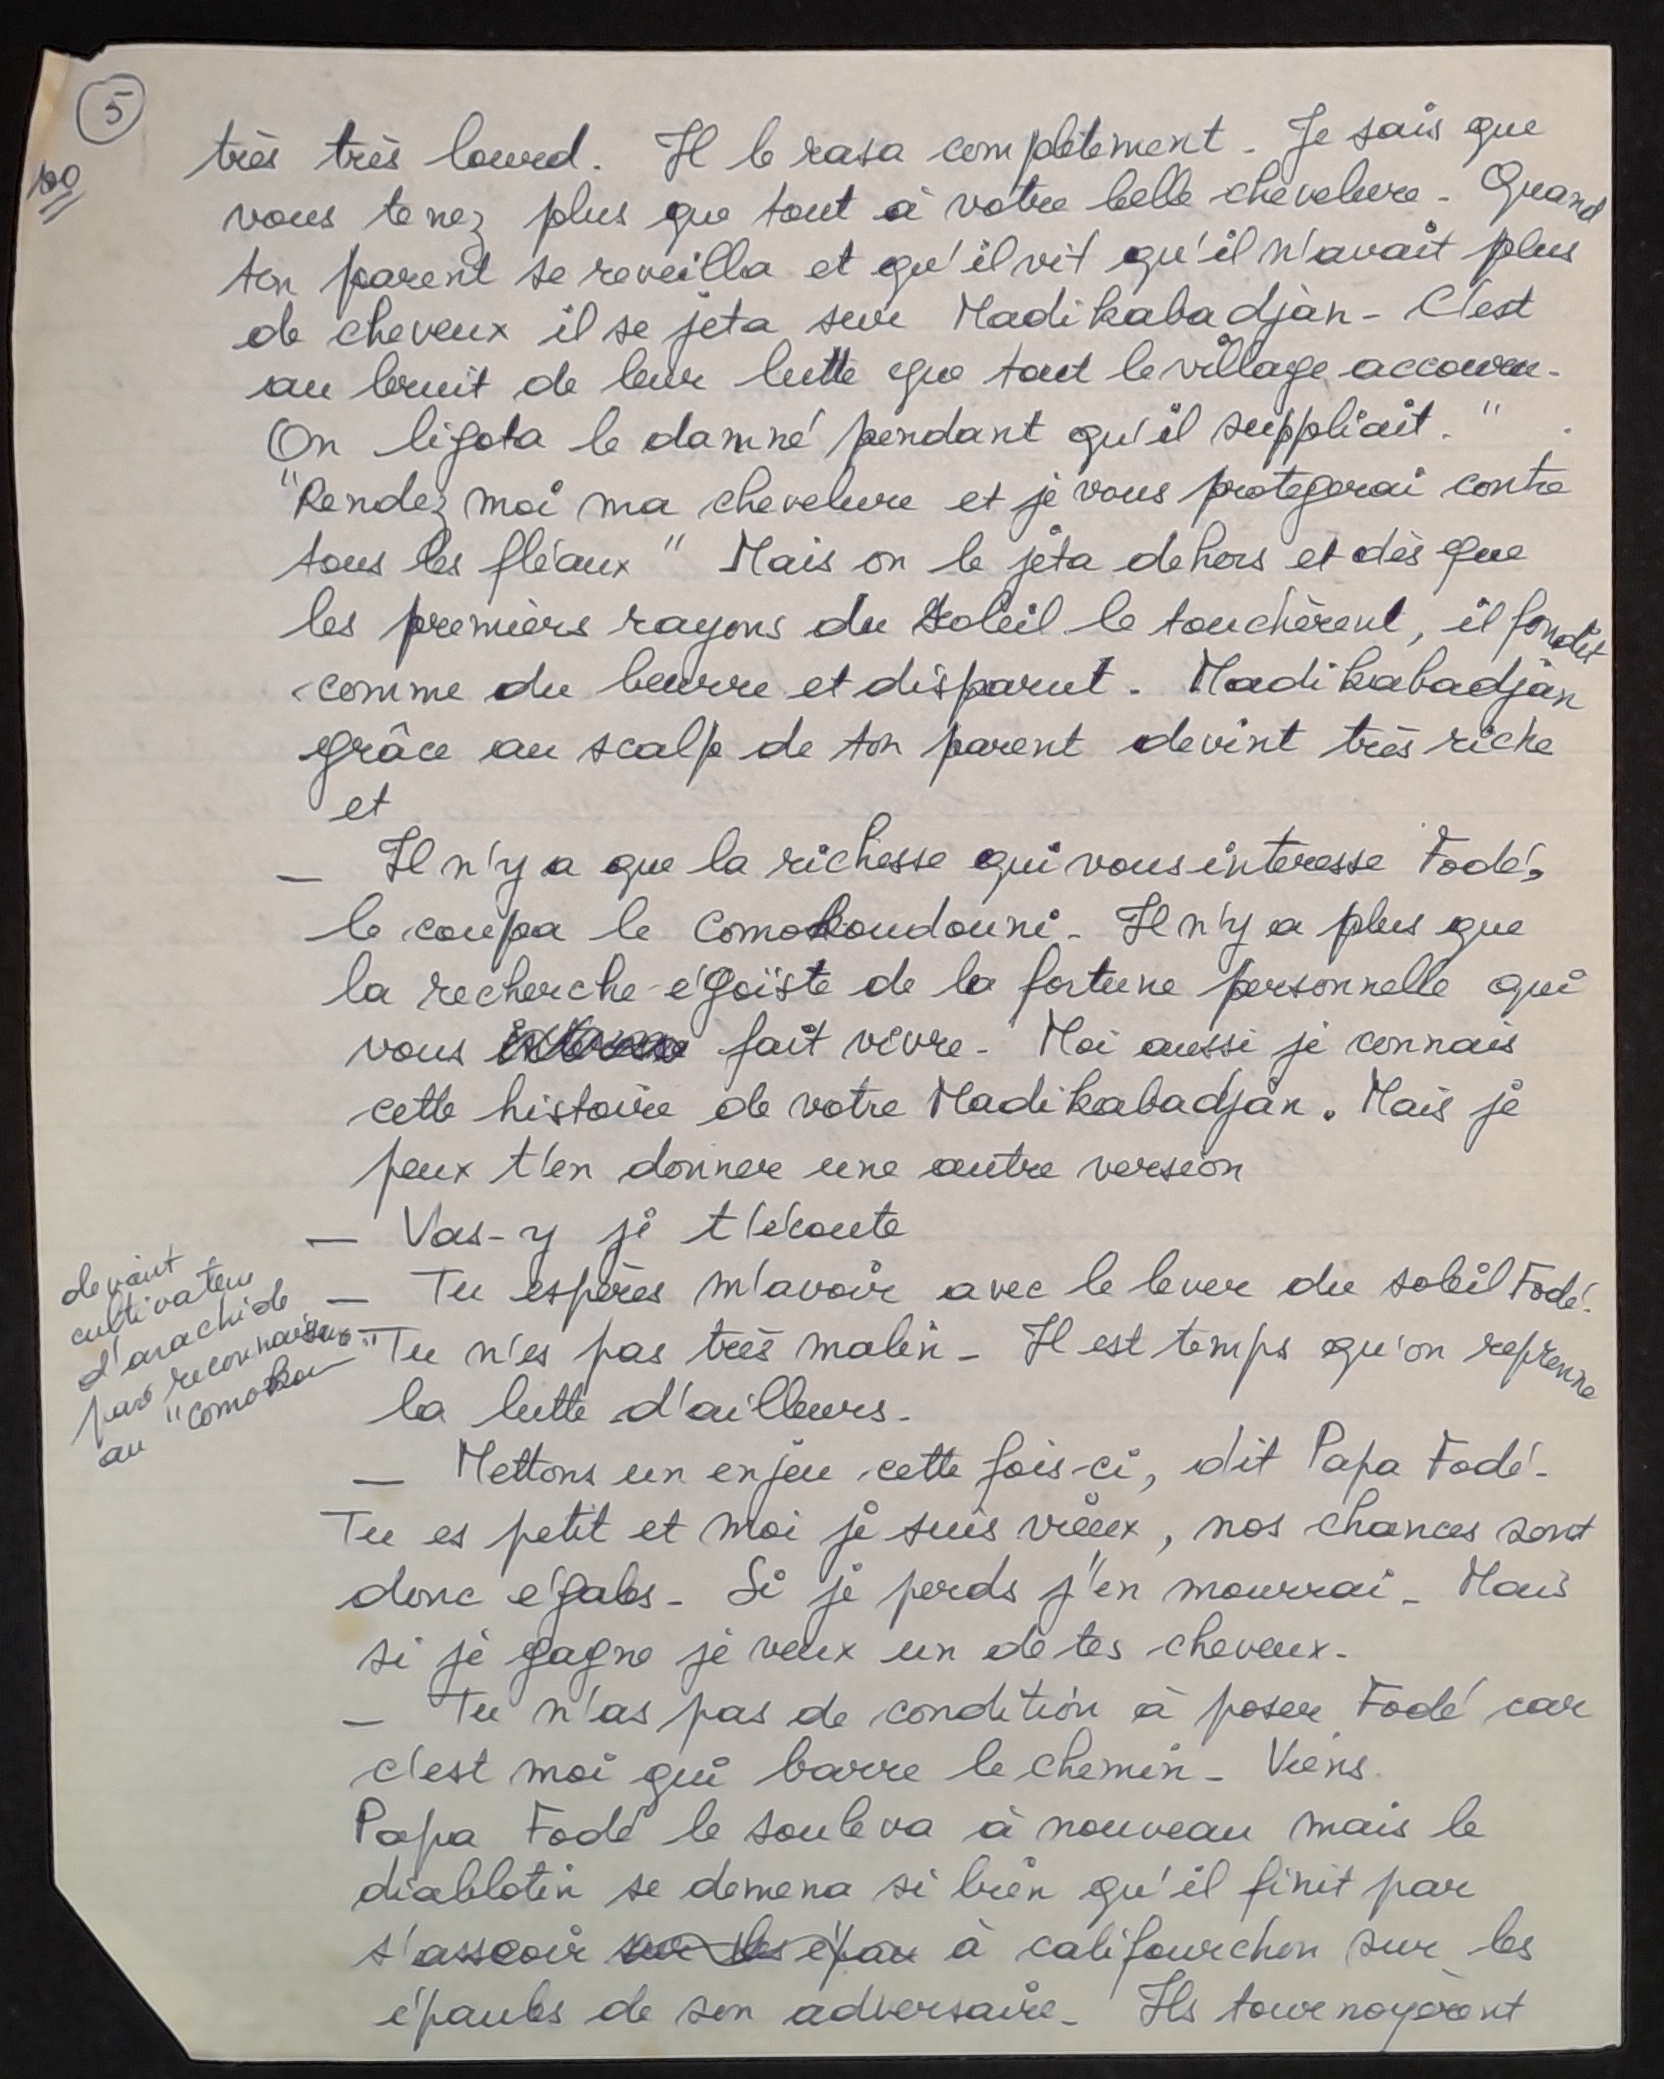 5
très très lourd. Il le rasa complètement. Je sais que
vous tenez plus que tout à votre belle chevelure. Quand
ton parent se reveilla et qu'il vit qu'il n'avait plus
de cheveux il se jeta sur Madikabadjàn. C'est
au bruit de leur lutte que tout le village accouru.
On ligota le damné pendant qu'il suppliait."
"Rendez moi ma chevelure et je vous protegerai contre
tous les fléaux" Mais on le jeta dehors et dès que
les premièrs rayons du soleil le touchèrent, il fondit
comme du beurre et disparut. Madikabadjàn
grâce au scalp de ton parent devint très riche
et
— Il n'y a que la richesse qui vous interesse Fodé,
le coupa le Comokoudouni. Il n'y a plus que
la recherche égoïste de la fortune personnelle qui
vous fait vivre. Moi aussi je connais
cette histoire de votre Madikabadjàn. Mais je
peux t'en donner une autre version
— Vas-y je t'écoute
— Tu espères m'avoir avec le lever du soleil Fodé.
Tu n'es pas très malin. Il est temps qu'on reprenne
la lutte d'ailleurs.
— Mettons un enjeu cette fois-ci, dit Papa Fodé.
Tu es petit et moi je suis vieux, nos chances sont
donc égales. Si je perds j'en mourrai. Mais
si je gagne je veux un de tes cheveux.
— Tu n'as pas de condition à poser Fodé car
c'est moi qui barre le chemin. Viens.
Papa Fodé le souleva à nouveau mais le
diablotin se demena si bien qu'il finit par
s'asseoir sur les épau à califourchon sur les
épaules de son adversaire. Ils tournoyèrent
devint
cultivateur
d'arachide
par reconnaissance
au "comokou"